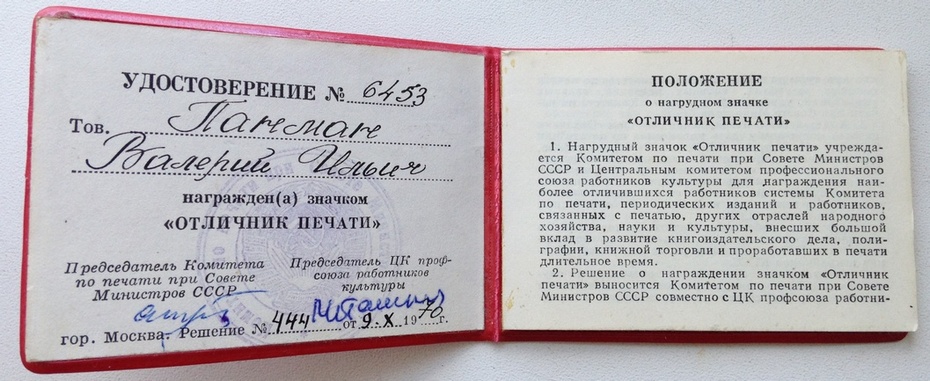 УДОСТОВЕРЕНИЕ № 6453
Тов. Пакман
Валерий Ильич
награжден(а) значком
«ОТЛИЧНИК ПЕЧАТИ»
Председатель Комитета
по печати при Совете
Министров СССР
Председатель ЦК проф-
союза работников
культуры
гор. Москва. Решение № 444 от 9-X 1970 г.
ПОЛОЖЕНИЕ
о нагрудном значке
«ОТЛИЧНИК ПЕЧАТИ»
1. Нагрудный значок «Отличник печати» учрежда-
ется Комитетом по печати при Совете Министров
СССР и Центральным комитетом профессионального
союза работников культуры для награждения наи-
более отличившихся работников системы Комитета
по печати, периодических изданий и работников,
связанных с печатью, других отраслей народного
хозяйства, науки и культуры, внесших большой
вклад в развитие книгоиздательского дела, поли-
графии, книжной торговли и проработавших в печати
длительное время.
2. Решение о награждении значком «Отличник
печати» выносится Комитетом по печати при Совете
Министров СССР совместно с ЦК профсоюза работни-